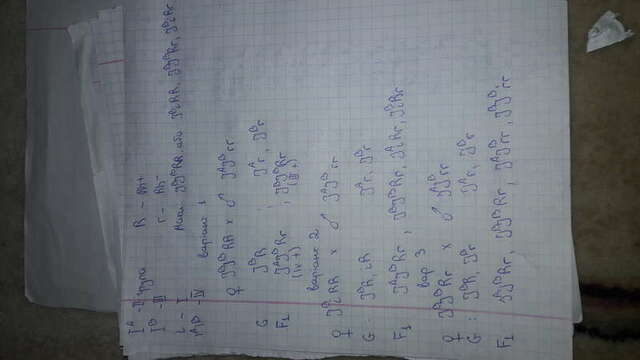 I^A - II група R - Rh+
I^B - III r - Rh-
i - I
I^A I^B - IV
Мати I^B I^B RR або I^B i RR, I^B I^B Rr, I^B i Rr
варіант 1
♀ I^B I^B RR x ♂ I^A I^B rr
G I^B R ; I^A r, I^B r
F1 I^A I^B Rr ; I^B I^B Rr
(IV +) (III +)
варіант 2
♀ I^B i RR x ♂ I^A I^B rr
G: I^B R, iR I^A r, I^B r
F1 I^A I^B Rr, I^B I^B Rr, I^A i Rr, I^B i Rr
вар 3
♀ I^B I^B Rr x ♂ I^A I^B rr
G: I^B R, I^B r I^A r, I^B r
F1 I^A I^B Rr, I^B I^B Rr, I^A I^B rr, I^B I^B rr